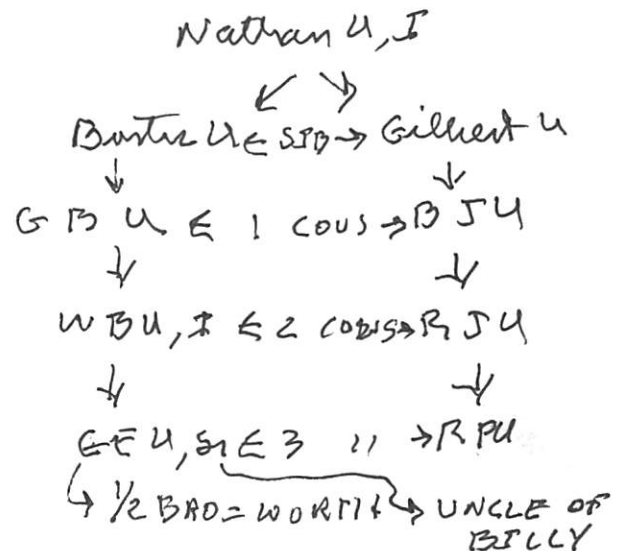 Nathan U, I
↙ ↘
Buster U ← SIB → Gilbert U
↓ ↓
G B U ← 1 COUS → B J U
↓ ↓
W B U, I ← 2 COUS → R J U
↓ ↓
E U, Sr ← 3 " → R P U
↳ 1/2 BRO = WORTH → UNCLE OF
BILLY